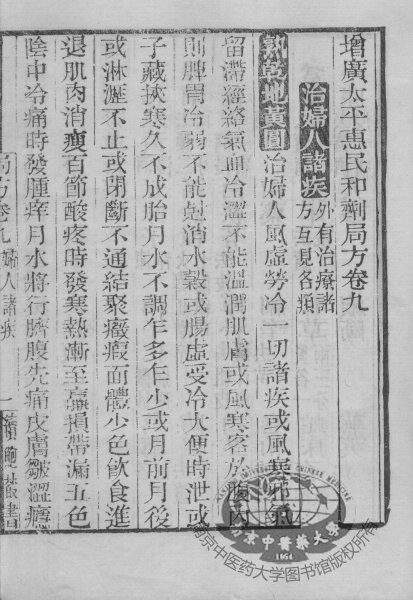 增廣太平惠民和劑局方卷九
治婦人諸疾 外有治療諸
方互見各類
熟乾地黃圓 治婦人風虛勞冷一切諸疾或風寒邪氣
留滯經絡氣血冷澀不能溫潤肌膚或風寒客於腹內
則脾胃冷弱不能尅消水穀或腸虛受冷大便時泄或
子藏挾寒久不成胎月水不調乍多乍少或月前月後
或淋瀝不止或閉斷不通結聚癥瘕面體少色飲食進
退肌肉消瘦百節酸疼時發寒熱漸至羸損帶漏五色
陰中冷痛時發腫痒月水將行臍腹先痛皮膚皺澀癮
局方卷九 婦人諸疾 一
南京中醫藥大學
1954
南京中医药大学图书馆版权所有